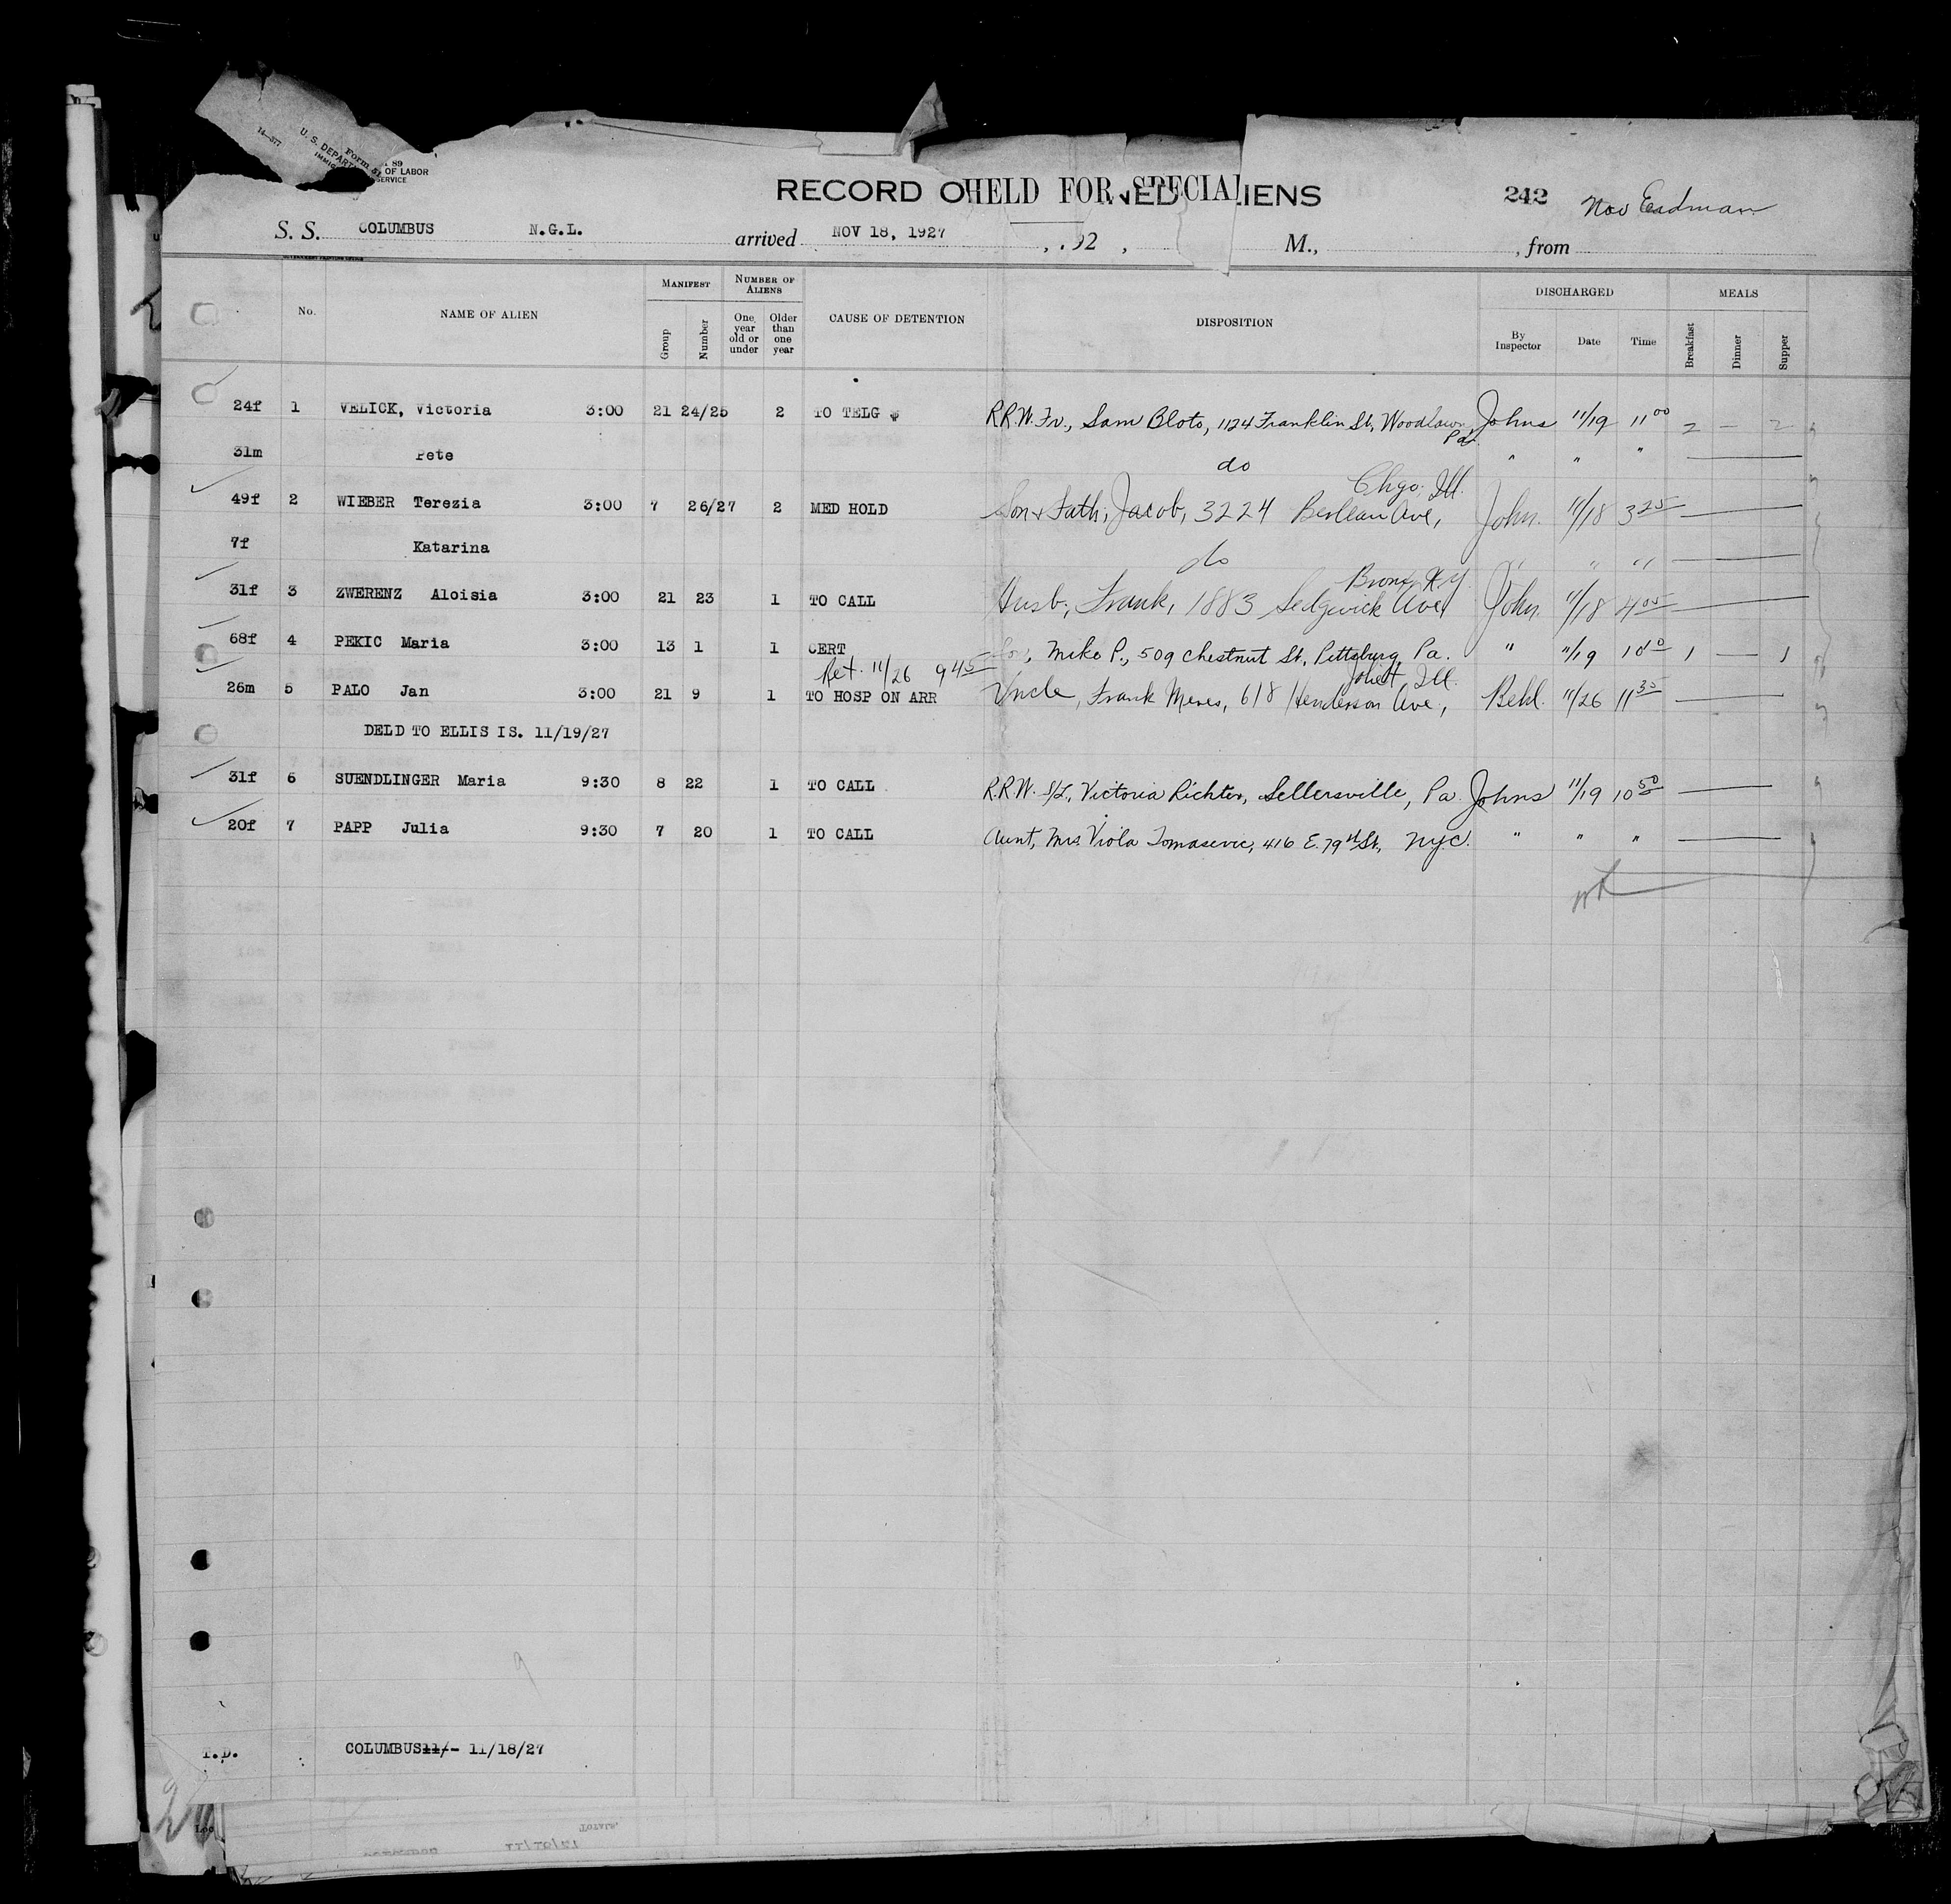 14—377
Form 51
U. S. DEPART
IMMIG
89
OF LABOR
SERVICE
RECORD O HELD FOR SPECIAL NED LIENS
242
S. S. COLUMBUS N.G.L. arrived NOV 18, 1927 , 192 , M., , from
No.
NAME OF ALIEN
MANIFEST
Group
Number
NUMBER OF ALIENS
One year old or under
Older than one year
CAUSE OF DETENTION
DISPOSITION
DISCHARGED
By Inspector
Date
Time
MEALS
Breakfast
Dinner
Supper
24f 1 VELICK, Victoria 3:00 21 24/25 2 TO TELG $ R.R.W. Fr., Sam Bloto, 1124 Franklin St, Woodlawn, Pa. Johns 11/19 11 00 2 — 2
31m Pete do " " "
49f 2 WIEBER Terezia 3:00 7 26/27 2 MED HOLD Son & Fath, Jacob, 3224 Ave, Chgo, Ill. John. 11/18 3 25
7f Katarina do " " "
31f 3 ZWERENZ Aloisia 3:00 21 23 1 TO CALL Husb, Frank, 1883 Sedgwick Ave Bronx, N.Y. John. 11/18 4 05
68f 4 PEKIC Maria 3:00 13 1 1 CERT Son, Mike P., 509 Chestnut St, Pittsburg, Pa. " 11/19 1 — 1
Ret. 11/26 9 45
26m 5 PALO Jan 3:00 21 9 1 TO HOSP ON ARR Uncle, Frank Meres, 618 Henderson Ave, Joliet Ill. Behl. 11/26 11 35
DELD TO ELLIS IS. 11/19/27
31f 6 SUENDLINGER Maria 9:30 8 22 1 TO CALL R.R.W. S/L, Victoria Richter, Sellersville, Pa. Johns 11/19 10 50
20f 7 PAPP Julia 9:30 7 20 1 TO CALL Aunt, Mrs. Viola Tomasevic, 416 E. 79th St, NYC. " " "
T.D. COLUMBUS 11/- 11/18/27